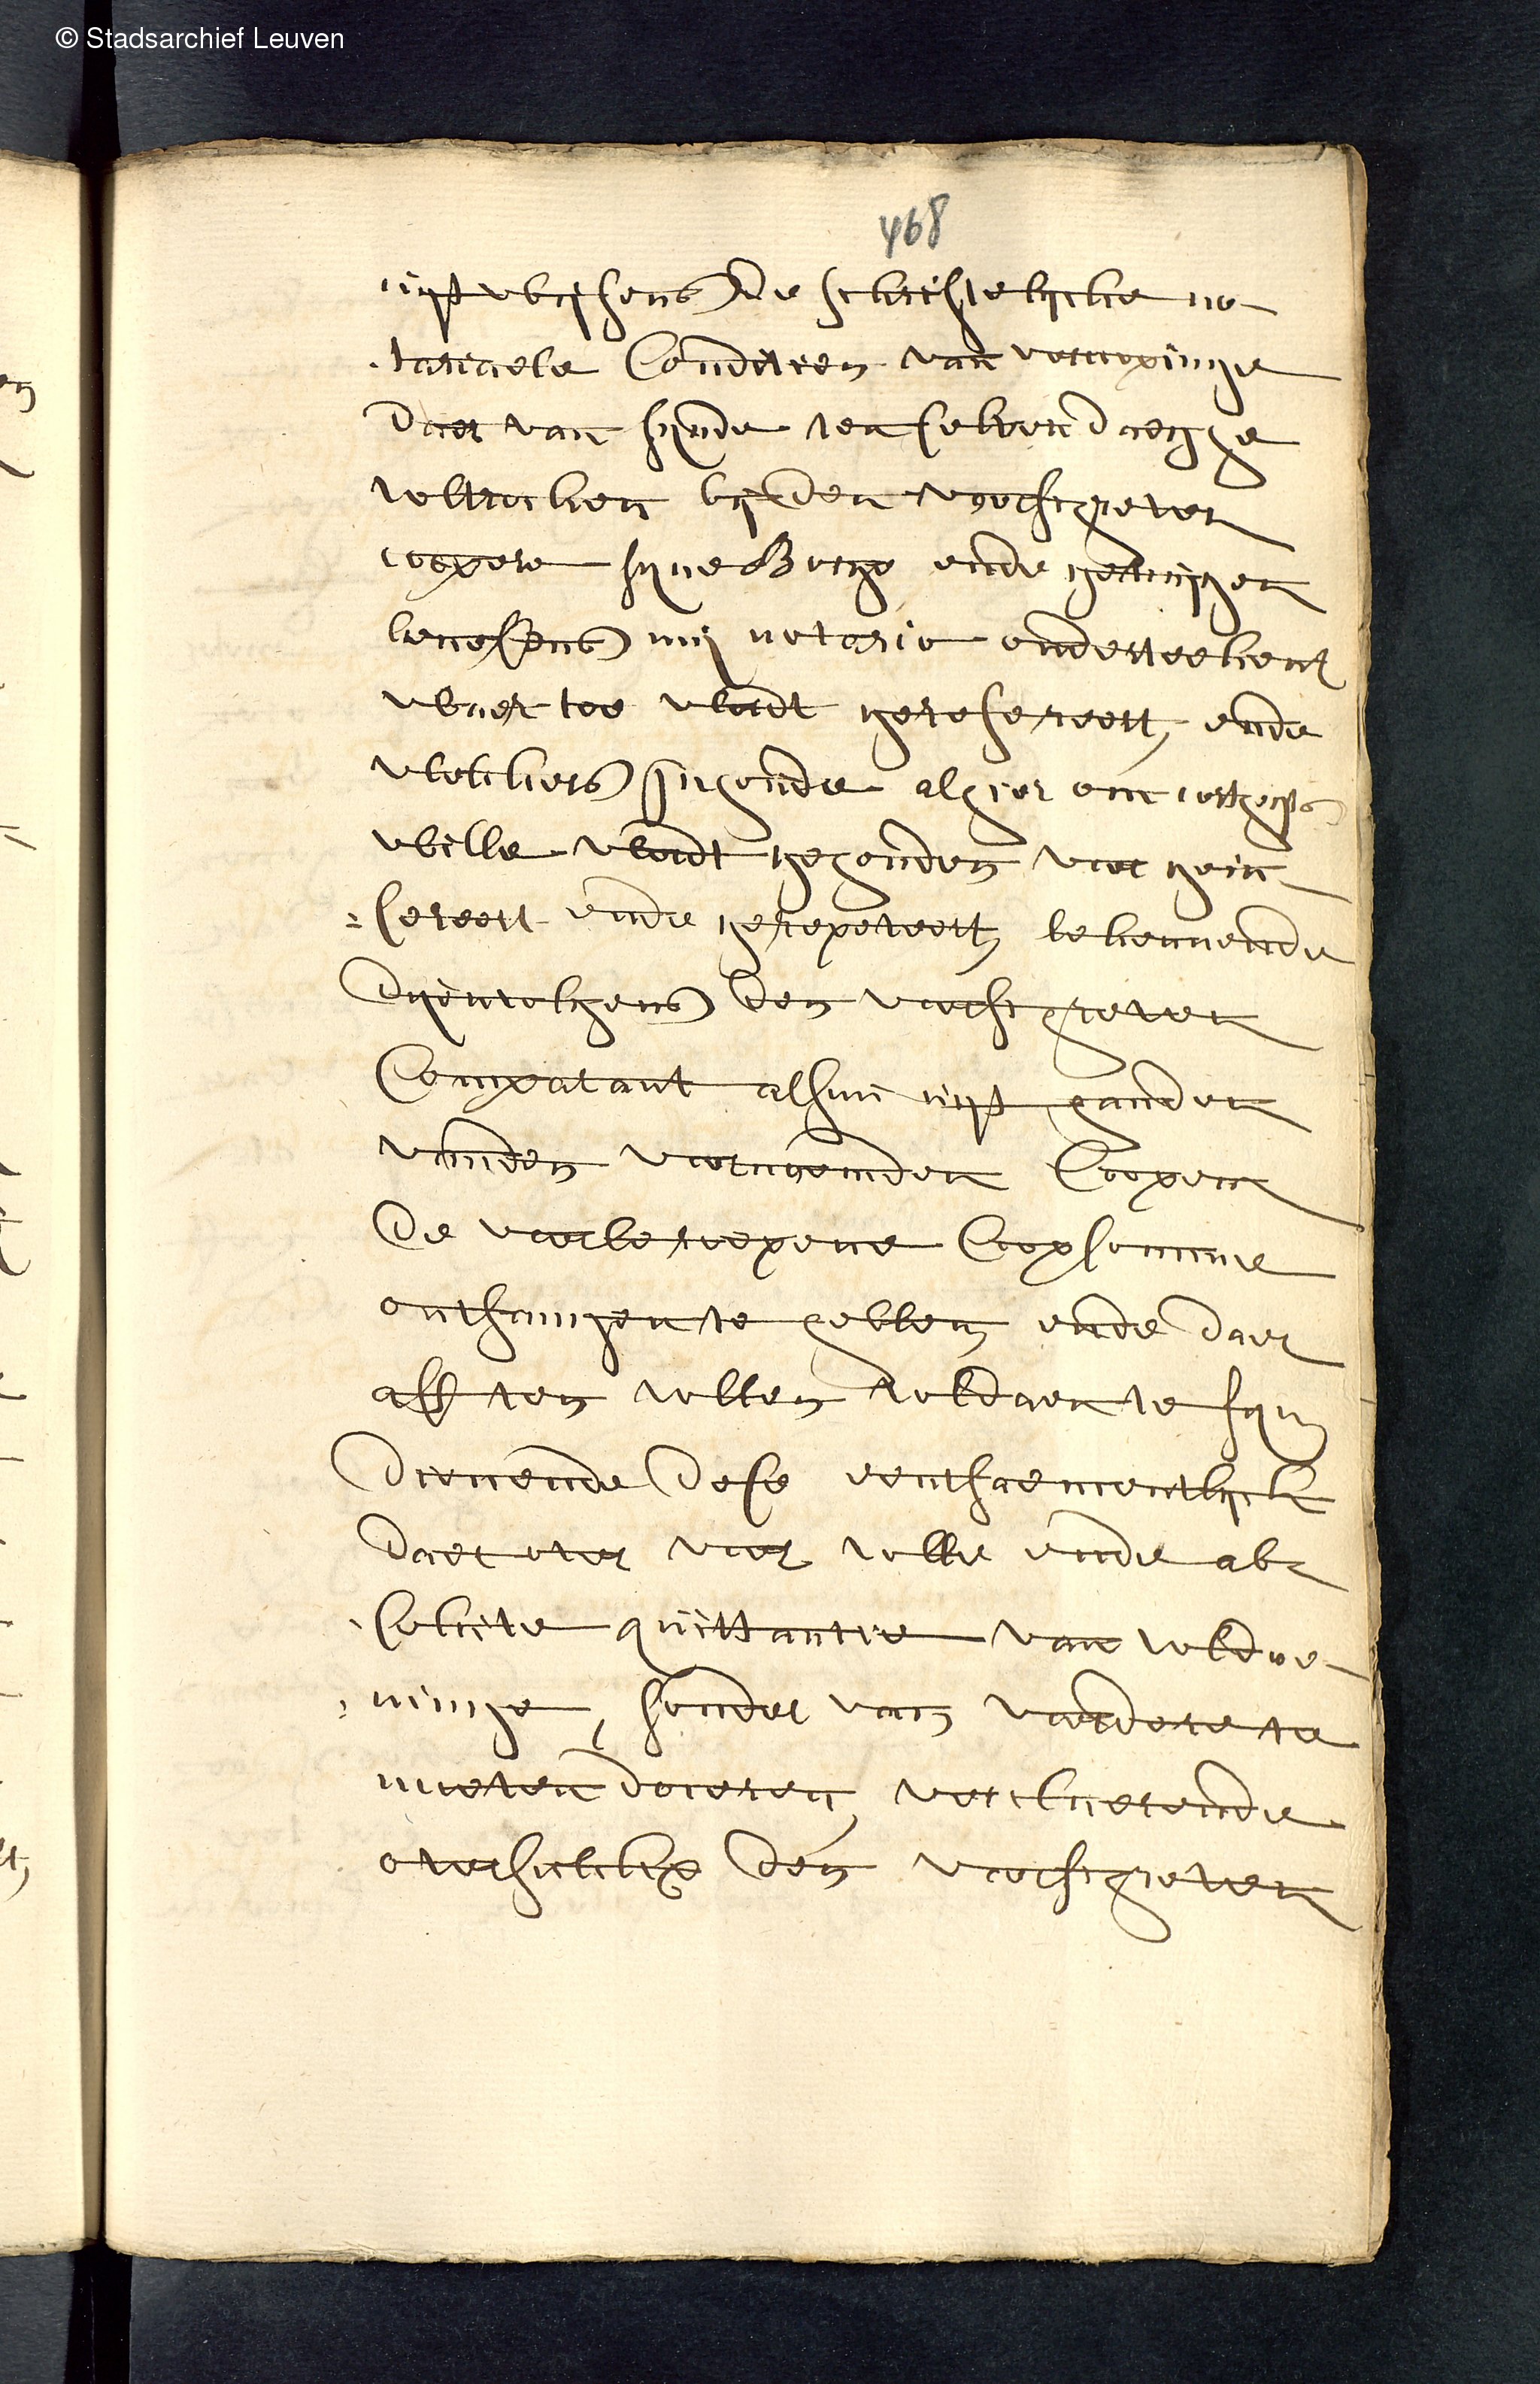 © Stadsarchief Leuven
468
uijt wijsens de schriftelijcke no-
tariaele Conditien van vercoopinge
daer van sijnde ten selven daeghe
voltrocken bij den voorschreven
coopere sijne Borge ende getuijgen
beneffens mij notario onderteekent
waer toe wordt gerefereert, ende
welckers inhoude alhier om cortheijts
wille wordt gehouden voor gein-
sereert ende gerepeteert, bekennende
dijenvolgens den voorschreven
Comparant alsnu uijt handen
vanden voornoemden Cooper
de voorberoepene Coopsomme
ontfangen te hebben ende daer
aff ten vollen voldaen te sijn
dienende dese eenthaementlijck
daer over voor volle ende ab-
solute quittantie van voldoe-
ninge, sonder van voordere te
moeten doceren, verclaerende
oversulckx den voorschreven